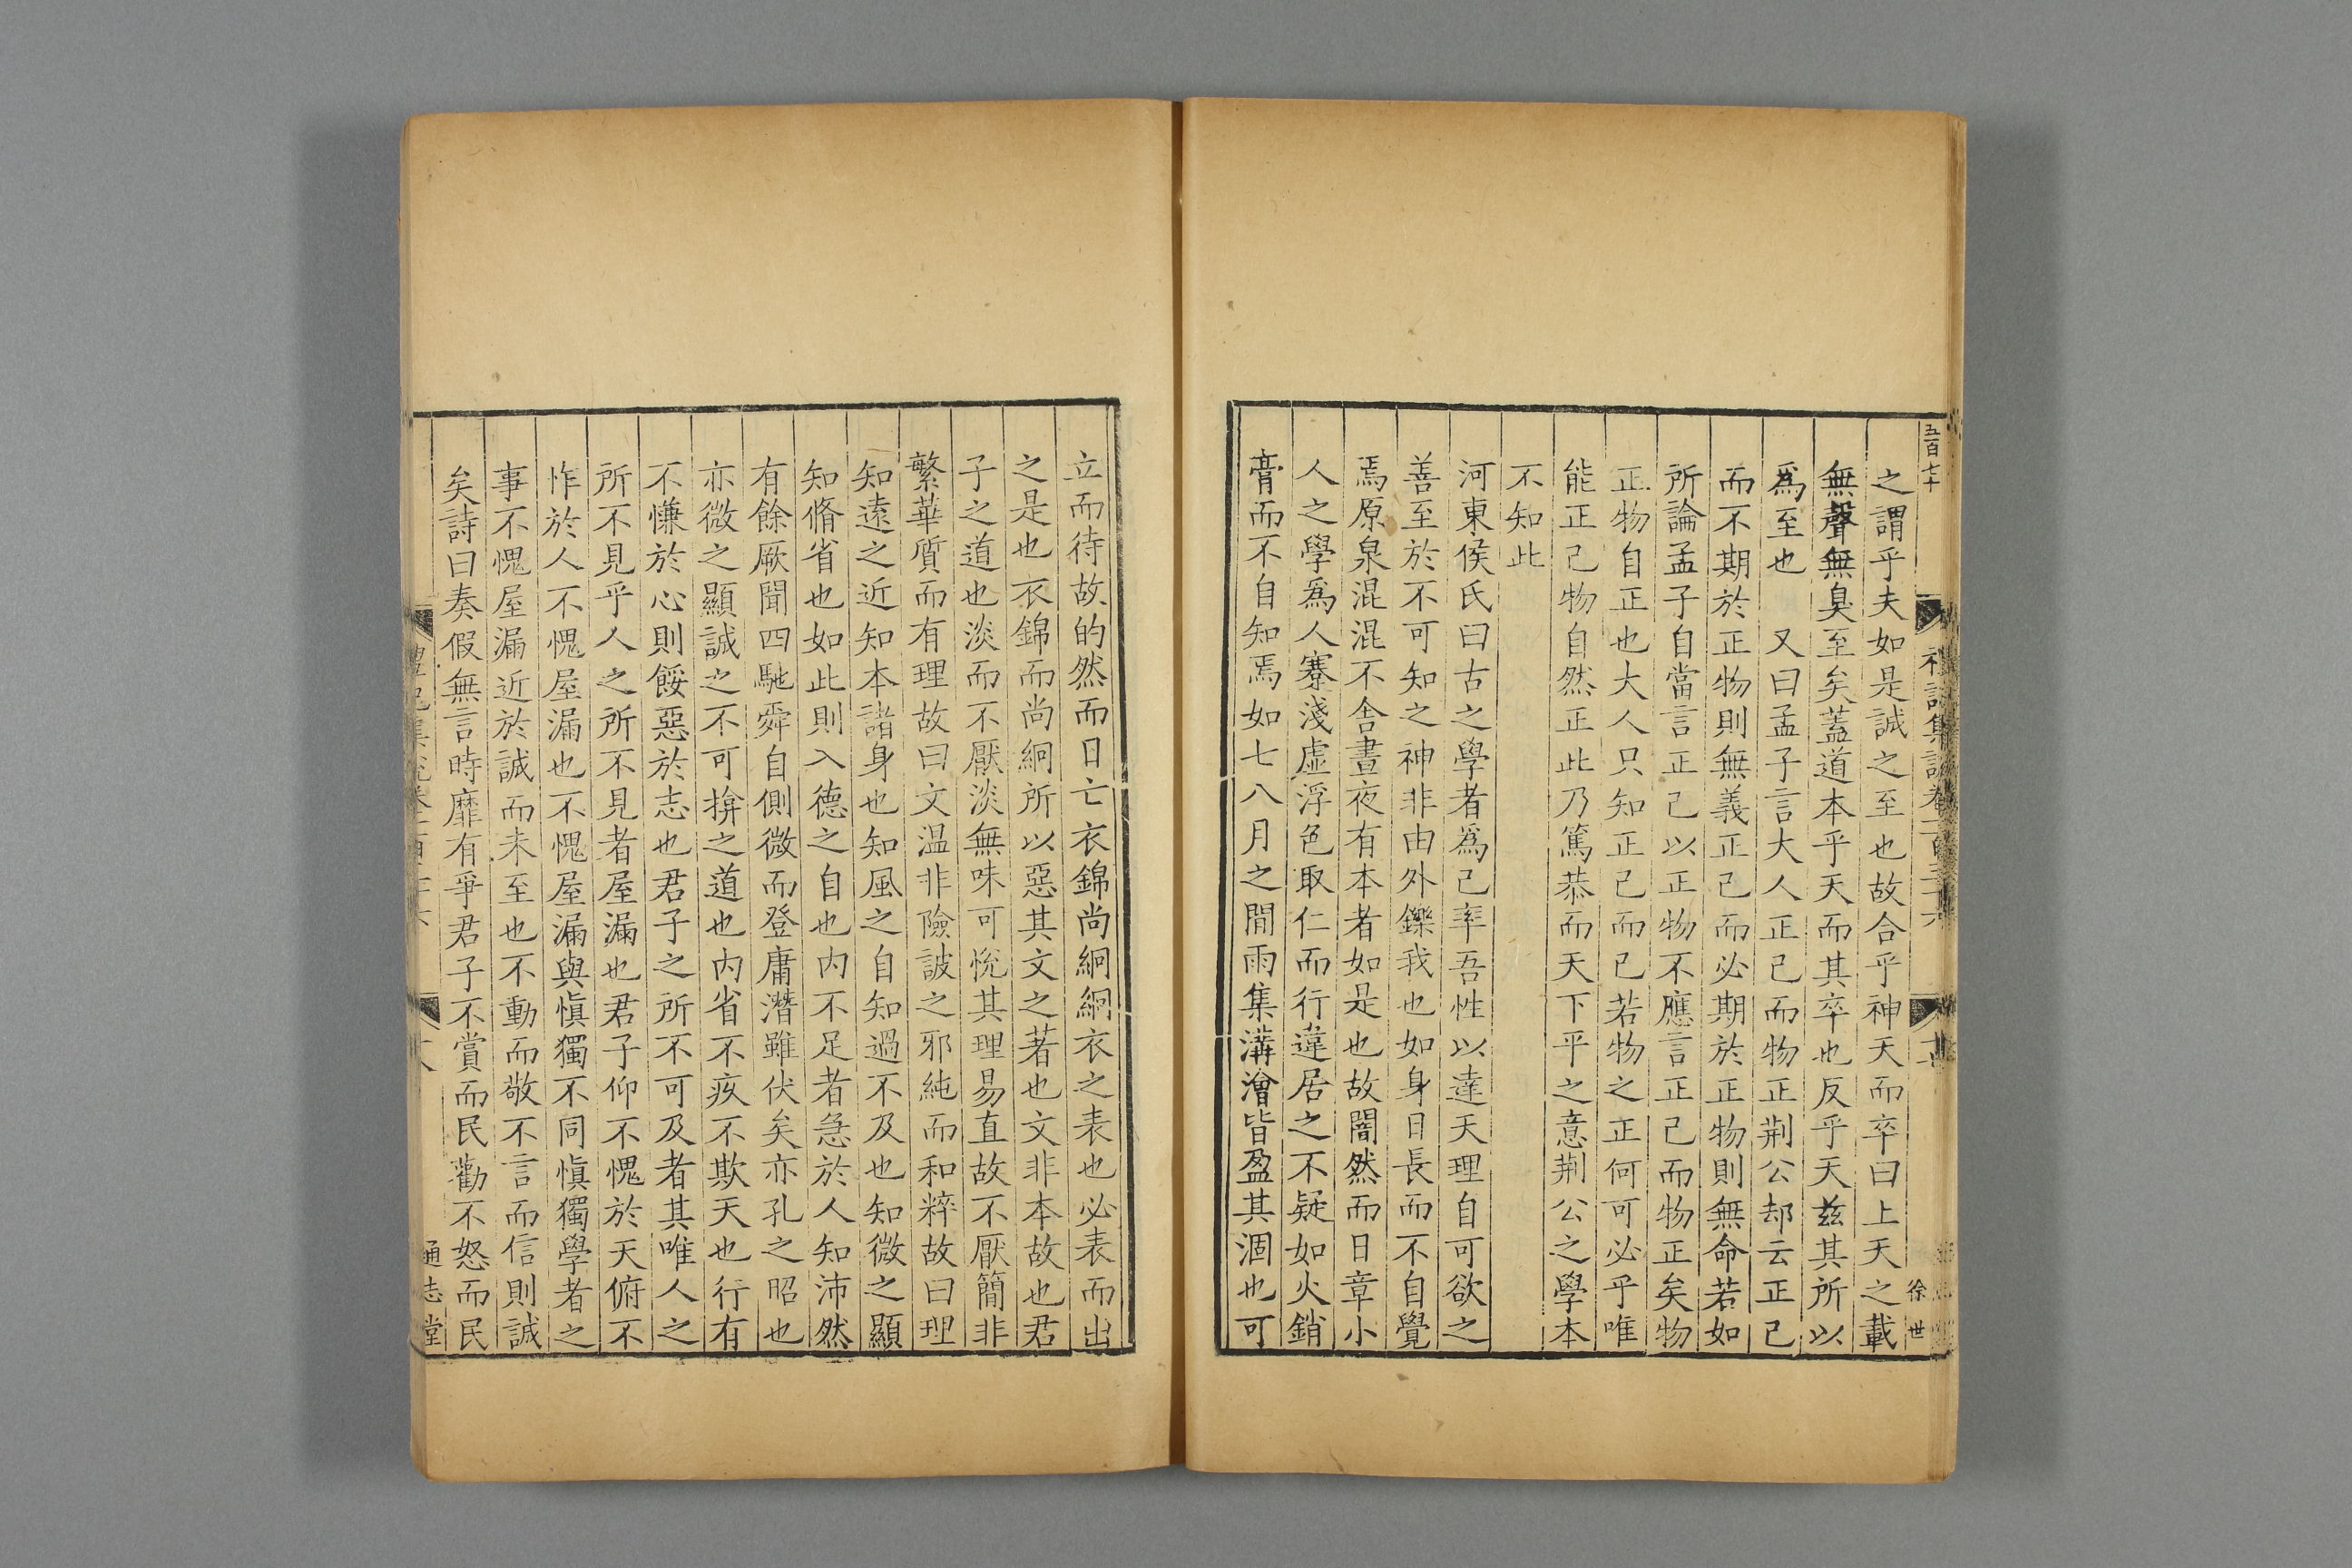 五百七十
禮記集說卷一百三十六
徐世
之謂乎夫如是誠之至也故合乎神天而卒曰上天之載
無聲無臭至矣蓋道本乎天而其卒也反乎天茲其所以
爲至也 又曰孟子言大人正己而物正荆公却云正己
而不期於正物則無義正己而必期於正物則無命若如
所論孟子自當言正己以正物不應言正己而物正矣物
正物自正也大人只知正己而已若物之正何可必乎唯
能正己物自然正此乃篤恭而天下平之意荆公之學本
不知此
河東侯氏曰古之學者爲己率吾性以達天理自可欲之
善至於不可知之神非由外鑠我也如身日長而不自覺
焉原泉混混不舍晝夜有本者如是也故闇然而日章小
人之學爲人寡淺虛浮色取仁而行違居之不疑如火銷
膏而不自知焉如七八月之間雨集溝澮皆盈其涸也可
立而待故的然而日亡衣錦尚絅絅衣之表也必表而出
之是也衣錦而尚絅所以惡其文之著也文非本故也君
子之道也淡而不厭淡無味可悅其理易直故不厭簡非
繁華質而有理故曰文温非險詖之邪純而和粹故曰理
知遠之近知本諸身也知風之自知過不及也知微之顯
知脩省也如此則入德之自也内不足者急於人知沛然
有餘厥聞四馳舜自側微而登庸潛雖伏矣亦孔之昭也
亦微之顯誠之不可揜之道也内省不疚不欺天也行有
不慊於心則餒惡於志也君子之所不可及者其唯人之
所不見乎人之所不見者屋漏也君子仰不愧於天俯不
怍於人不愧屋漏也不愧屋漏與愼獨不同愼獨學者之
事不愧屋漏近於誠而未至也不動而敬不言而信則誠
矣詩曰奏假無言時靡有爭君子不賞而民勸不怒而民
禮記集說卷一百三十六
通志堂